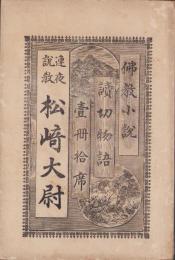 佛教小説
讀切物語
壹冊拾席
連夜
説教
松崎大尉